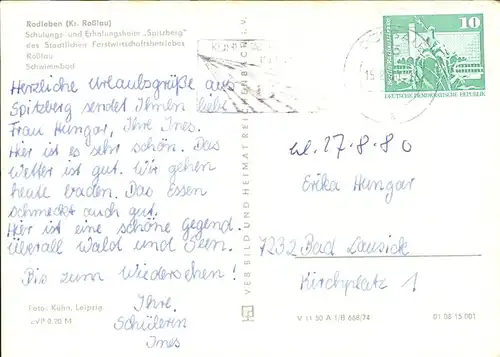 Rodleben (Kr. Roßlau)
Schulungs- und Erholungsheim „Spitzberg"
des Staatlichen Forstwirtschaftsbetriebes
Roßlau
Schwimmbad
Herzliche Urlaubsgrüße aus
Spitzberg sendet Ihnen liebe
Frau Hungar, Ihre Ines.
Hier ist es sehr schön. Das
Wetter ist gut. Wir gehen
heute baden. Das Essen
schmeckt auch gut.
Hier ist eine schöne Gegend.
Überall Wald und Seen.
Bis zum Wiedersehen!
Ihre
Schülerin
Ines
Foto: Kühn, Leipzig
EVP 0,20 M
VEB BILD UND HEIMAT REICHENBACH i. V.
10
DEUTSCHE DEMOKRATISCHE REPUBLIK
17.8.80
Erika Hungar
7232 Bad Lausick
Kirchplatz 1
V 11 50 A 1/B 668/74
01 08 15 001